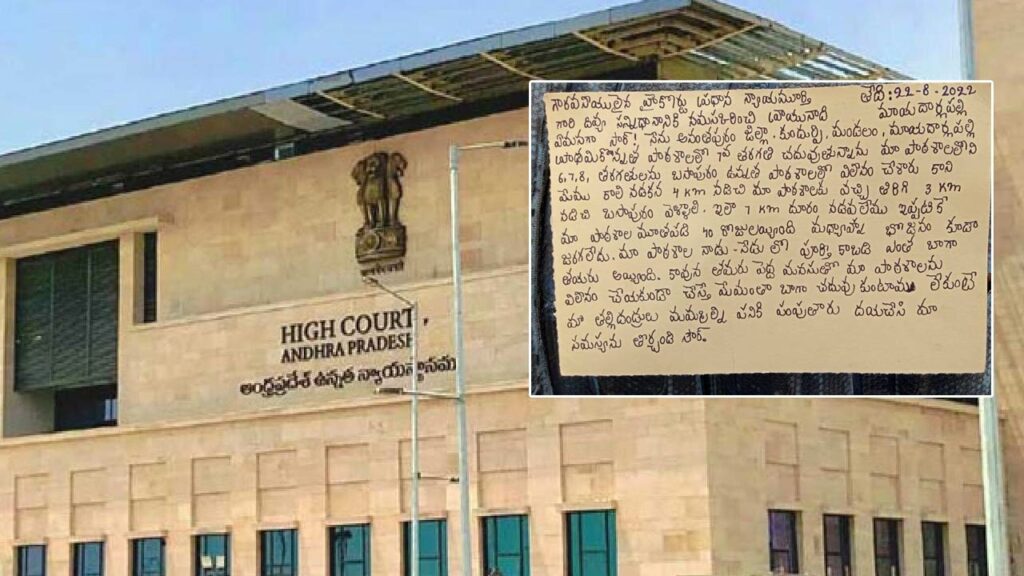 HIGH COURT,
ANDHRA PRADESH
ఆంధ్రప్రదేశ్ ఉన్నత న్యాయస్థానము
గౌరవనీయులైన హైకోర్టు ప్రధాన న్యాయమూర్తి తేది:22-8-2022
గారి దివ్య సన్నిధానానికి నమస్కరించి వ్రాయునది
సార్! నేను అనంతపురం జిల్లా. కుందుర్పి మండలం,
పాఠశాలలో 7వ తరగతి చదువుతున్నాను. మా పాఠశాలలోని
6,7,8, తరగతులను బసాపురం ఉన్నత పాఠశాలలో విలీనం చేశారు కాని
మేము కాలి నడకన 4 KM నడిచి మా పాఠశాలకు వచ్చి తిరిగి 3 KM
నడిచి బసాపురం వెళ్ళాలి. ఇలా 7 KM దూరం నడవలేము ఇప్పటికే
మా పాఠశాల మూతపడి 40 రోజులయ్యింది మధ్యాహ్న భోజనం కూడా
జరగలేదు. మా పాఠశాల నాడు-నేడు లో పూర్తి కాబడి ఎంతో బాగా
తయారు అయ్యింది. కావున తమరు పెద్ద మనసుతో మా పాఠశాలను
విలీనం చేయకుండా చేస్తే మేమంతా బాగా చదువుకుంటాము లేకుంటే
మా తల్లిదండ్రులు మమ్మల్ని పనికి పంపుతారు దయచేసి మా
సమస్యను తీర్చండి సార్.